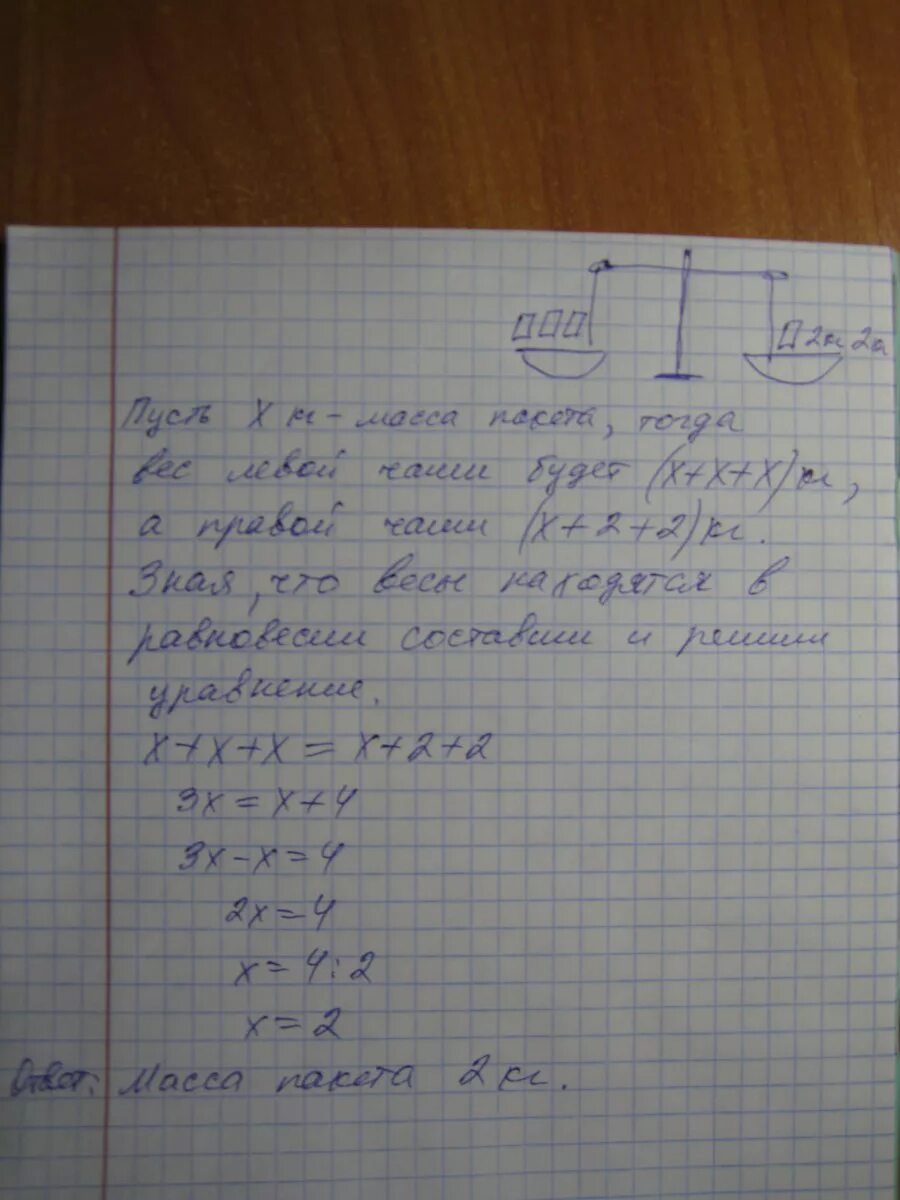 2кг 2к
Пусть X кг - масса пакета, тогда
вес левой чаши будет (x+x+x)кг,
а правой чаши (x+2+2)кг.
Зная, что весы находятся в
равновесии составим и решим
уравнение.
x+x+x=x+2+2
3x=x+4
3x-x=4
2x=4
x=4:2
x=2
Ответ: Масса пакета 2кг.